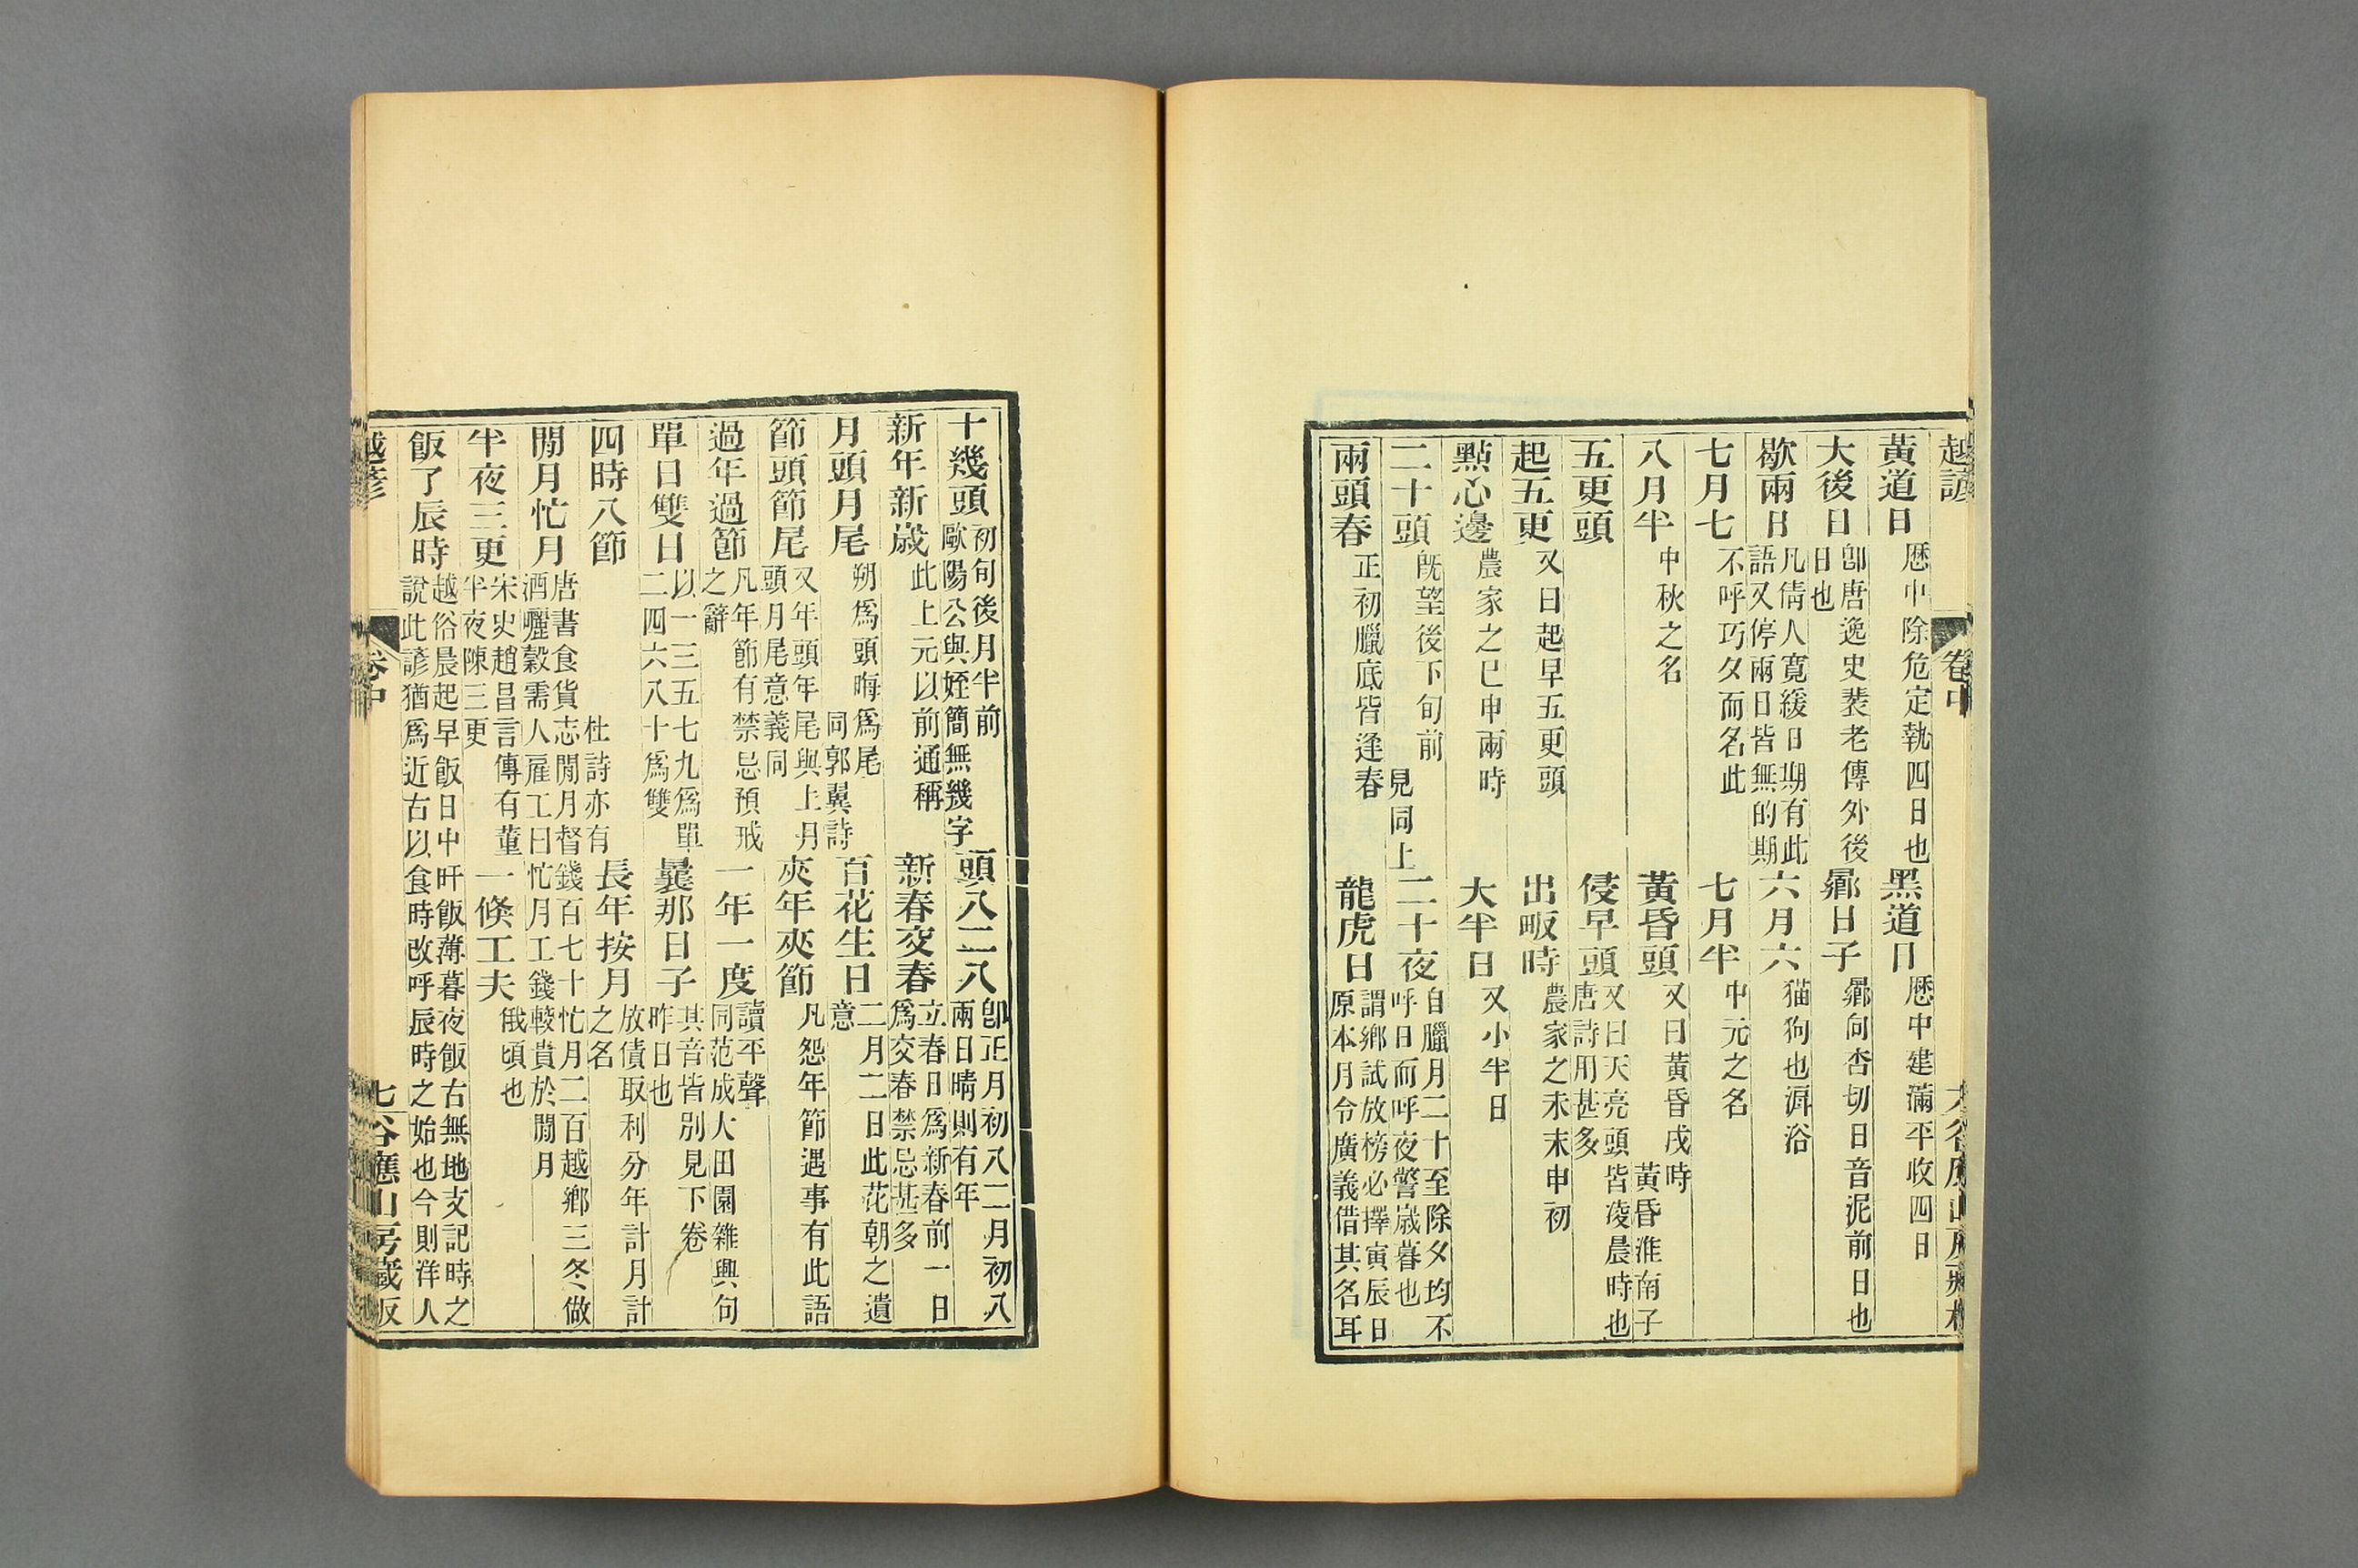 越諺 卷中
黃道日 歷中除危定執四日也 黑道日 歷中建滿平收四日
大後日 卽唐逸史裴老傳外後日也 曏日子 曏向杏切日音泥前日也
歇兩日 凡倩人寬緩日期有此語又停兩日皆無的期 六月六 猫狗也溽浴
七月七 不呼巧夕而名此 七月半 中元之名
八月半 中秋之名 黃昏頭 又曰黃昏戌時黃昏淮南子
五更頭 侵早頭 又曰天亮頭皆凌晨時也唐詩用甚多
起五更 又曰起早五更頭 出畈時 農家之未末申初
點心邊 農家之巳申兩時 大半日 又小半日
二十頭 旣望後下旬前見同上 二十夜 自臘月二十至除夕均不呼日而呼夜警歲暮也
兩頭春 正初臘底皆逢春 龍虎日 謂鄉試放榜必擇寅辰日原本月令廣義借其名耳
十幾頭 初旬後月半前歐陽公與姪簡無幾字 頭八二八 卽正月初八二月初八兩日晴則有年
新年新歲 此上元以前通稱 新春交春 立春日爲新春前一日爲交春禁忌甚多
月頭月尾 朔爲頭晦爲尾同郭翼詩 百花生日 二月二日此花朝之遺意
節頭節尾 又年頭年尾與上月頭月尾意義同 夾年夾節 凡怨年節遇事有此語
過年過節 凡年節有禁忌預戒之辭 一年一度 讀平聲同范成大田園雜興句
單日雙日 以一三五七九爲單二四六八十爲雙 曩那日子 其音皆別見下卷昨日也
四時八節 杜詩亦有 長年按月 放債取利分年計月計之名
閒月忙月 唐書食貨志閒月督錢百七十忙月二百越鄉三冬做酒曬穀需人雇工曰忙月工錢較貴於閒月
半夜三更 宋史趙昌言傳有董半夜陳三更 一倏工夫 俄頃也
飯了辰時 越俗晨起早飯日中旰飯薄暮夜飯古無地支記時之說此諺猶爲近古以食時改呼辰時之始也今則洋人
越諺 卷中 七 谷應山房藏板